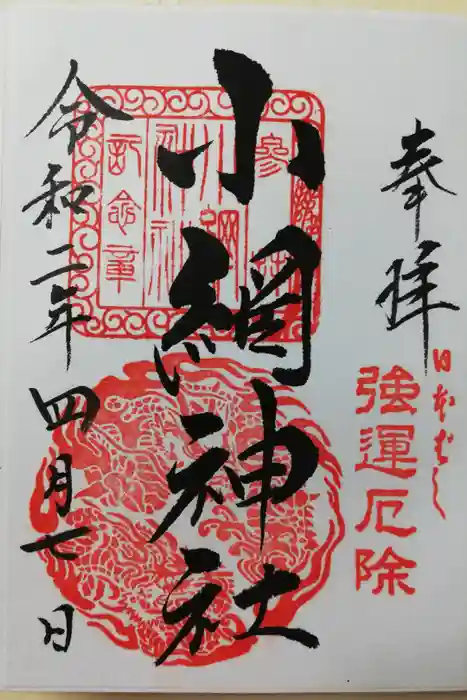 奉拝
日本ばし
強運厄除
小網神社
令和二年四月七日